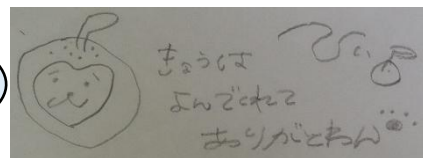 きょうは
よんでくれて
ありがとわん